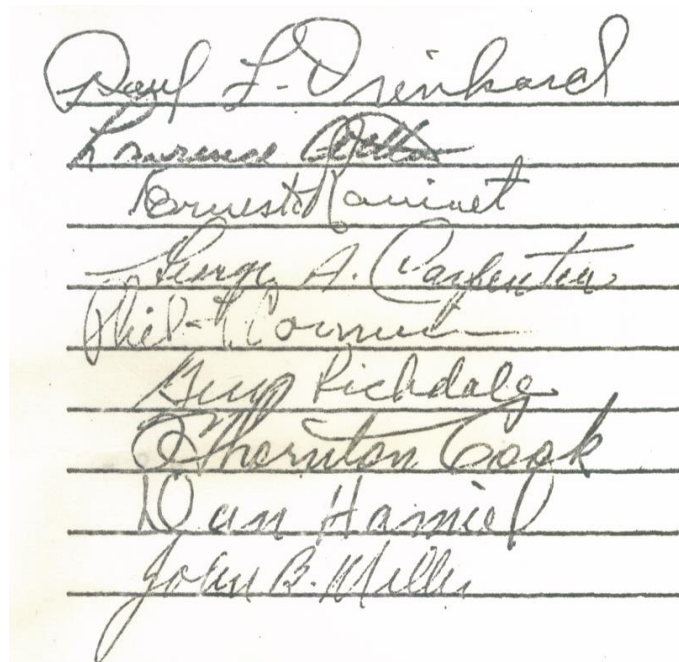 Paul L. Drinkard
Laurence
Ernest Kaminet
George A. Carpenter
Phil
Richdale
Thornton Cook
Dan Hamiel
John B. Miller